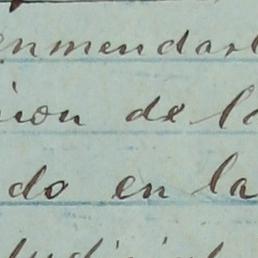 enmendarl
ion de la
do en la